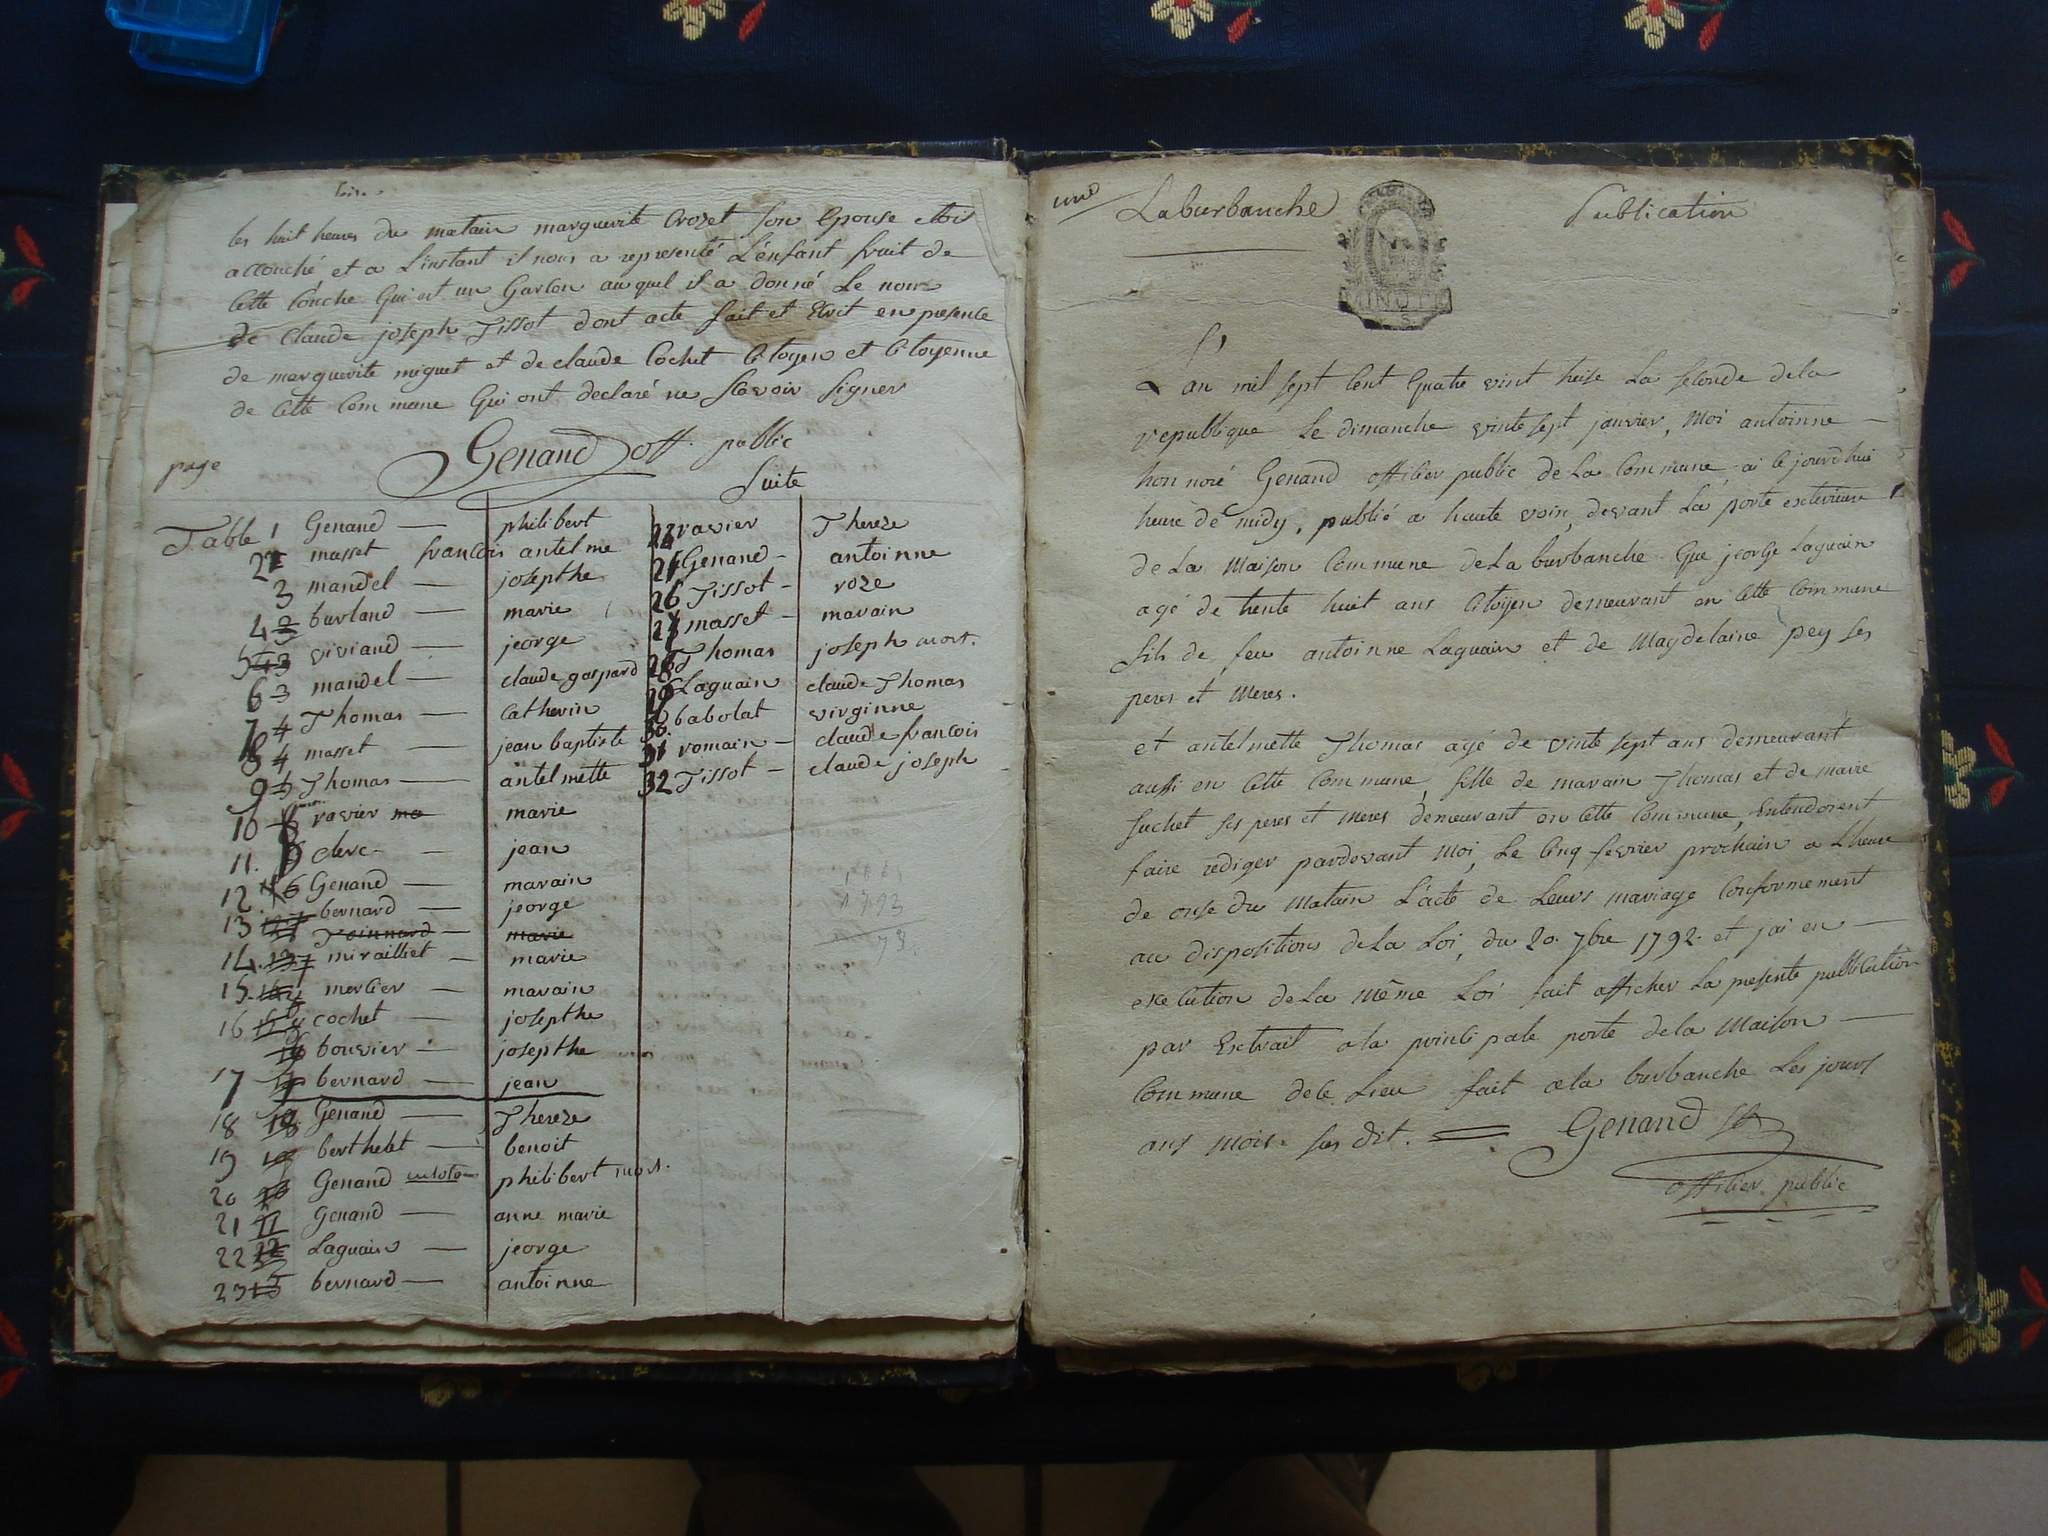 les huit heures du matain marguerite Crozet son Epouse etois
accouché et a Linstant il nous a representé Lénfant fruit de
Cette Couche Qui est un Garcon au quel il a donné Le nom
de Claude joseph Tissot dont acte fait et Ecrit en presence
de marguerite miguet et de claude Cochet Citoyen et Citoyenne
de Cette Commune Qui ont declaré ne Scavoir Signer
Genand off. public
page
Suite
Table 1 Genand — philibert
2 masset francois antelme
3 mandel — josepthe
4 burland — marie
5 viviand — jeorge
6 mandel — claude gaspard
7 Thomas — Catherin
8 masset — jean baptiste
9 Thomas — antelmette
10 ravier marie
11. clerc — jean
12 Genand — marain
13 bernard — jeorge
marie
14. mirailliet — marie
15. mercier — marain
16 cochet — josepthe
bouvier — josepthe
17 bernard — jean
18 Genand — Thereze
19 berthelet — benoit
20 Genand philibert mort.
21 Genand — anne marie
22 Laguain — jeorge
23 bernard — antoinne
24 ravier Thereze
25 Genand — antoinne
26 Tissot — roze
27 masset — marain
28 Thomas joseph mort.
29 Laguain claude Thomas
30 babolat virginne
31 romain — claude francois
32 Tissot — claude joseph
1793
Laburbanche
Publication
MINUTE
L'an mil sept Cent Quatre vint treise La seconde dela
republique Le dimanche vinte sept janvier, Moi antoinne —
honnoré Genand officier public de La Commune ai ce jourdhuit
heure de midy, publié a haute voix, devant La porte exterieure
de La Maison Commune deLa burbanche Que jeorge Laguain
agé de trente huit ans Citoyen demeurant en Cette Commune
fils de feu antoinne Laguain et de Magdelaine pey ses
peres et Meres.
et antelmette Thomas agé de vinte sept ans demeurant
aussi en Cette Commune, fille de marain Thomas et de marie
suchet ses peres et meres demeurant en Cette Commune, Entendorent
faire rediger pardevant Moi, Le Cinq fevrier prochain a Lheure
de onse du Matain L'acte de Leurs mariage Conformement
au dispositions deLa Loi, du 20. 7bre 1792. et jai en —
execution deLa même Loi fait afficher La presente publication
par Extrait a la principale porte dela Maison —
Commune dece Lieu fait a La burbanche Les jours
ans mois sus dit. Genand
officier public